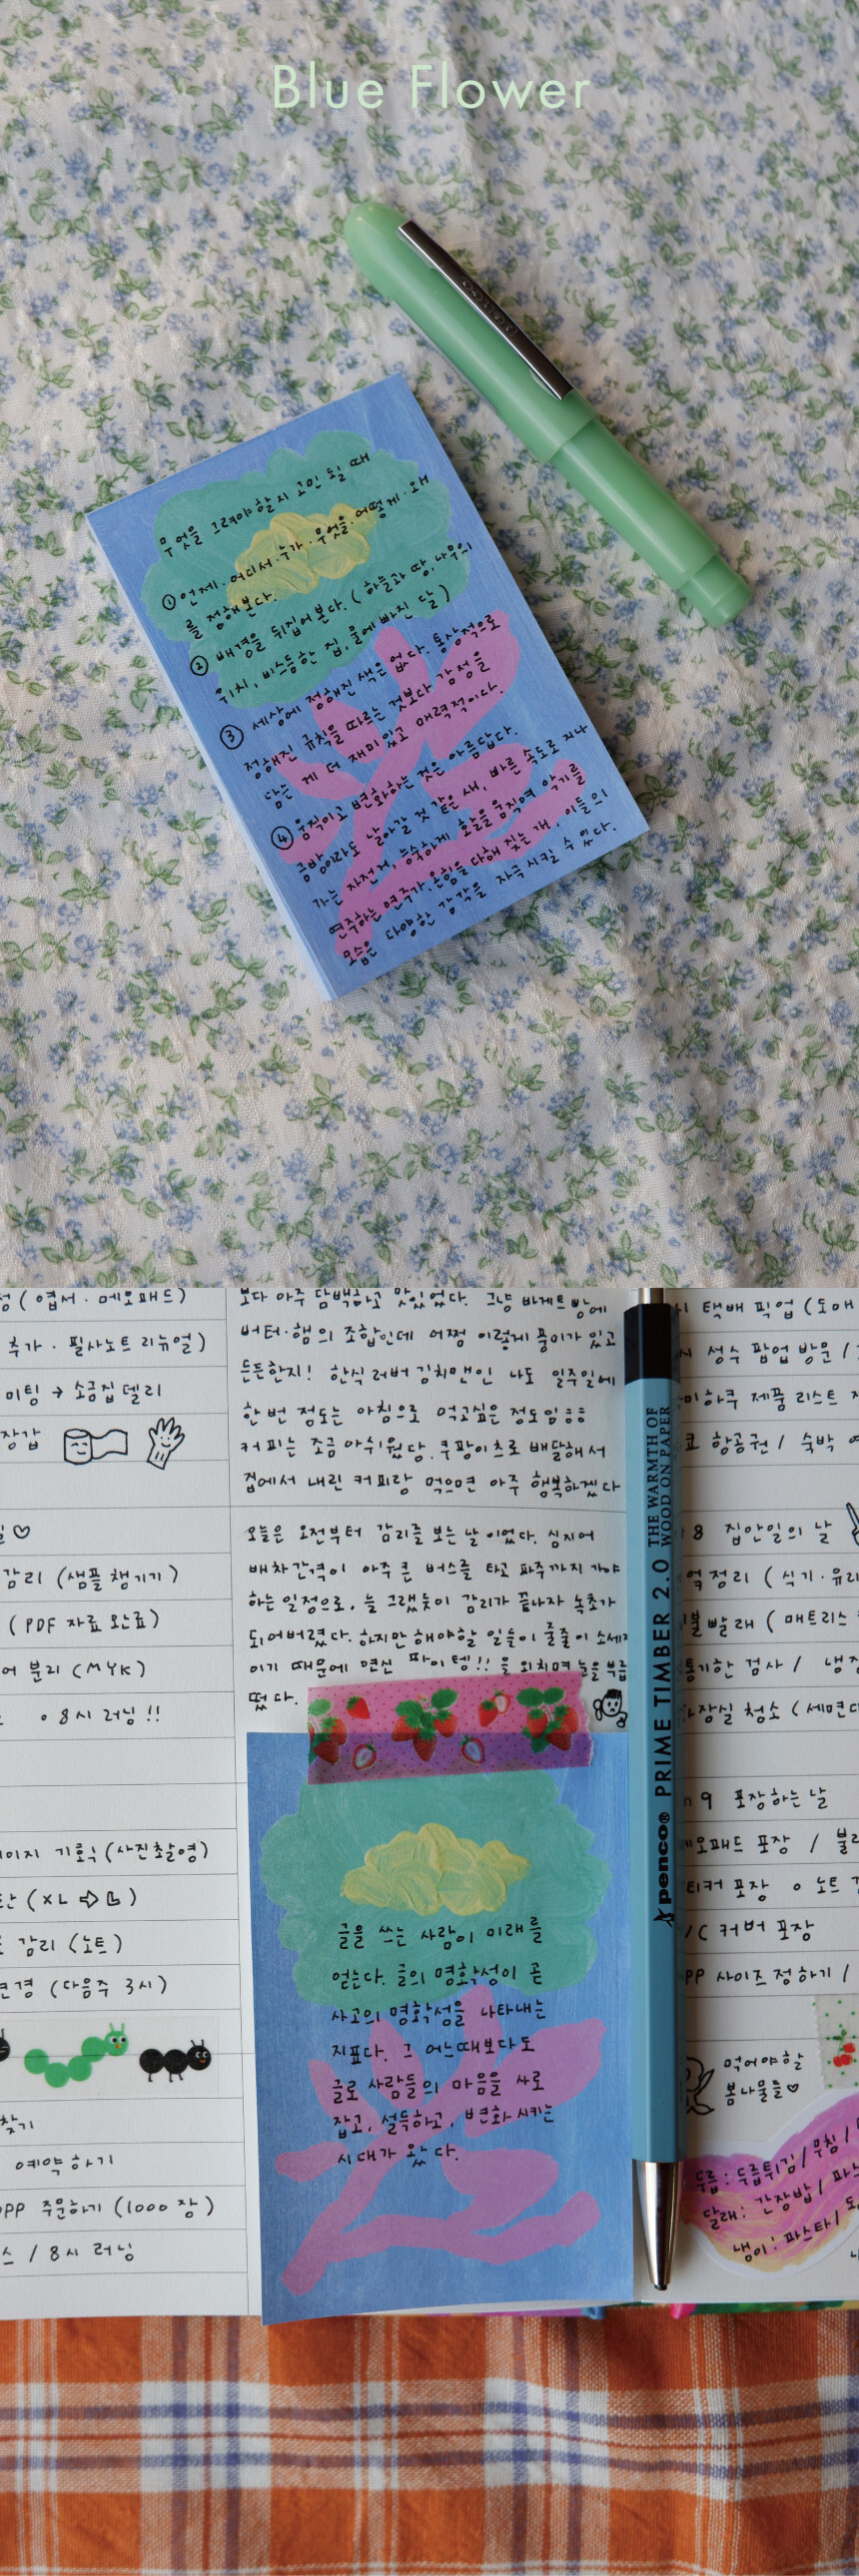 Blue Flower
penco
무엇을 그려야할지 고민 될 때
① 언제·어디서·누가·무엇을·어떻게·왜
를 정해본다.
② 배경을 뒤집어본다. (하늘과 땅, 나무의
위치, 비스듬한 집, 물에 빠진 달)
③ 세상에 정해진 색은 없다. 통상적으로
정해진 규칙을 따르는 것보다 감정을
담는 게 더 재미있고 매력적이다.
④ 움직이고 변화하는 것은 아름답다.
금방이라도 날아갈 것 같은 새, 빠른 속도로 지나
가는 자전거, 능숙하게 활을 움직며 악기를
연주하는 연주가, 온힘을 다해 짖는 개, 이들의
모습은 다양한 감각을 자극 시킬 수 있다.
(엽서·메모패드)
추가·필사노트 리뉴얼)
미팅 → 소금집 델리
장갑
♡
감리 (샘플 챙기기)
(PDF 자료 완료)
분리 (MYK)
• 8시 러닝!!
기획 (사진촬영)
(XL ⇨ L)
감리 (노트)
변경 (다음주 3시)
찾기
예약하기
OPP 주문하기 (1000장)
/ 8시 러닝
보다 아주 담백하고 맛있었다. 그냥 바게트빵에
버터·햄의 조합인데 어쩜 이렇게 풍미가 있고
든든한지! 한식러버 김치맨인 나도 일주일에
한번 정도는 아침으로 먹고싶은 정도임ㅎㅎ
커피는 조금 아쉬웠당. 쿠팡이츠로 배달해서
집에서 내린 커피랑 먹으면 아주 행복하겠다
오늘은 오전부터 감리를 보는 날이었다. 심지어
배차간격이 아주 큰 버스를 타고 파주까지 가야
하는 일정으로, 늘 그랬듯이 감리가 끝나자 녹초가
되어버렸다. 하지만 해야할 일들이 줄줄이 소세지
이기 때문에 연신 파이팅!! 을 외치며 눈을 부릅
떴다.
글을 쓰는 사람이 미래를
얻는다. 글의 명확성이 곧
사고의 명확성을 나타내는
지표다. 그 어느때보다도
글로 사람들의 마음을 사로
잡고, 설득하고, 변화시키는
시대가 왔다.
penco® PRIME TIMBER 2.0 THE WARMTH OF
WOOD ON PAPER
택배 픽업 (도예
성수 팝업 방문 /
미하쿠 제품 리스트
항공권 / 숙박
8 집안일의 날
정리 (식기·유리
이불빨래 (매트리스
검사 / 냉장
화장실 청소 (세면대
9 포장하는 날
메모패드 포장 /
스티커 포장 • 노트
커버 포장
OPP 사이즈 정하기 /
먹어야할
봄나물들♡
두릅: 두릅튀김/무침/
달래: 간장밥/파스
냉이: 파스타/